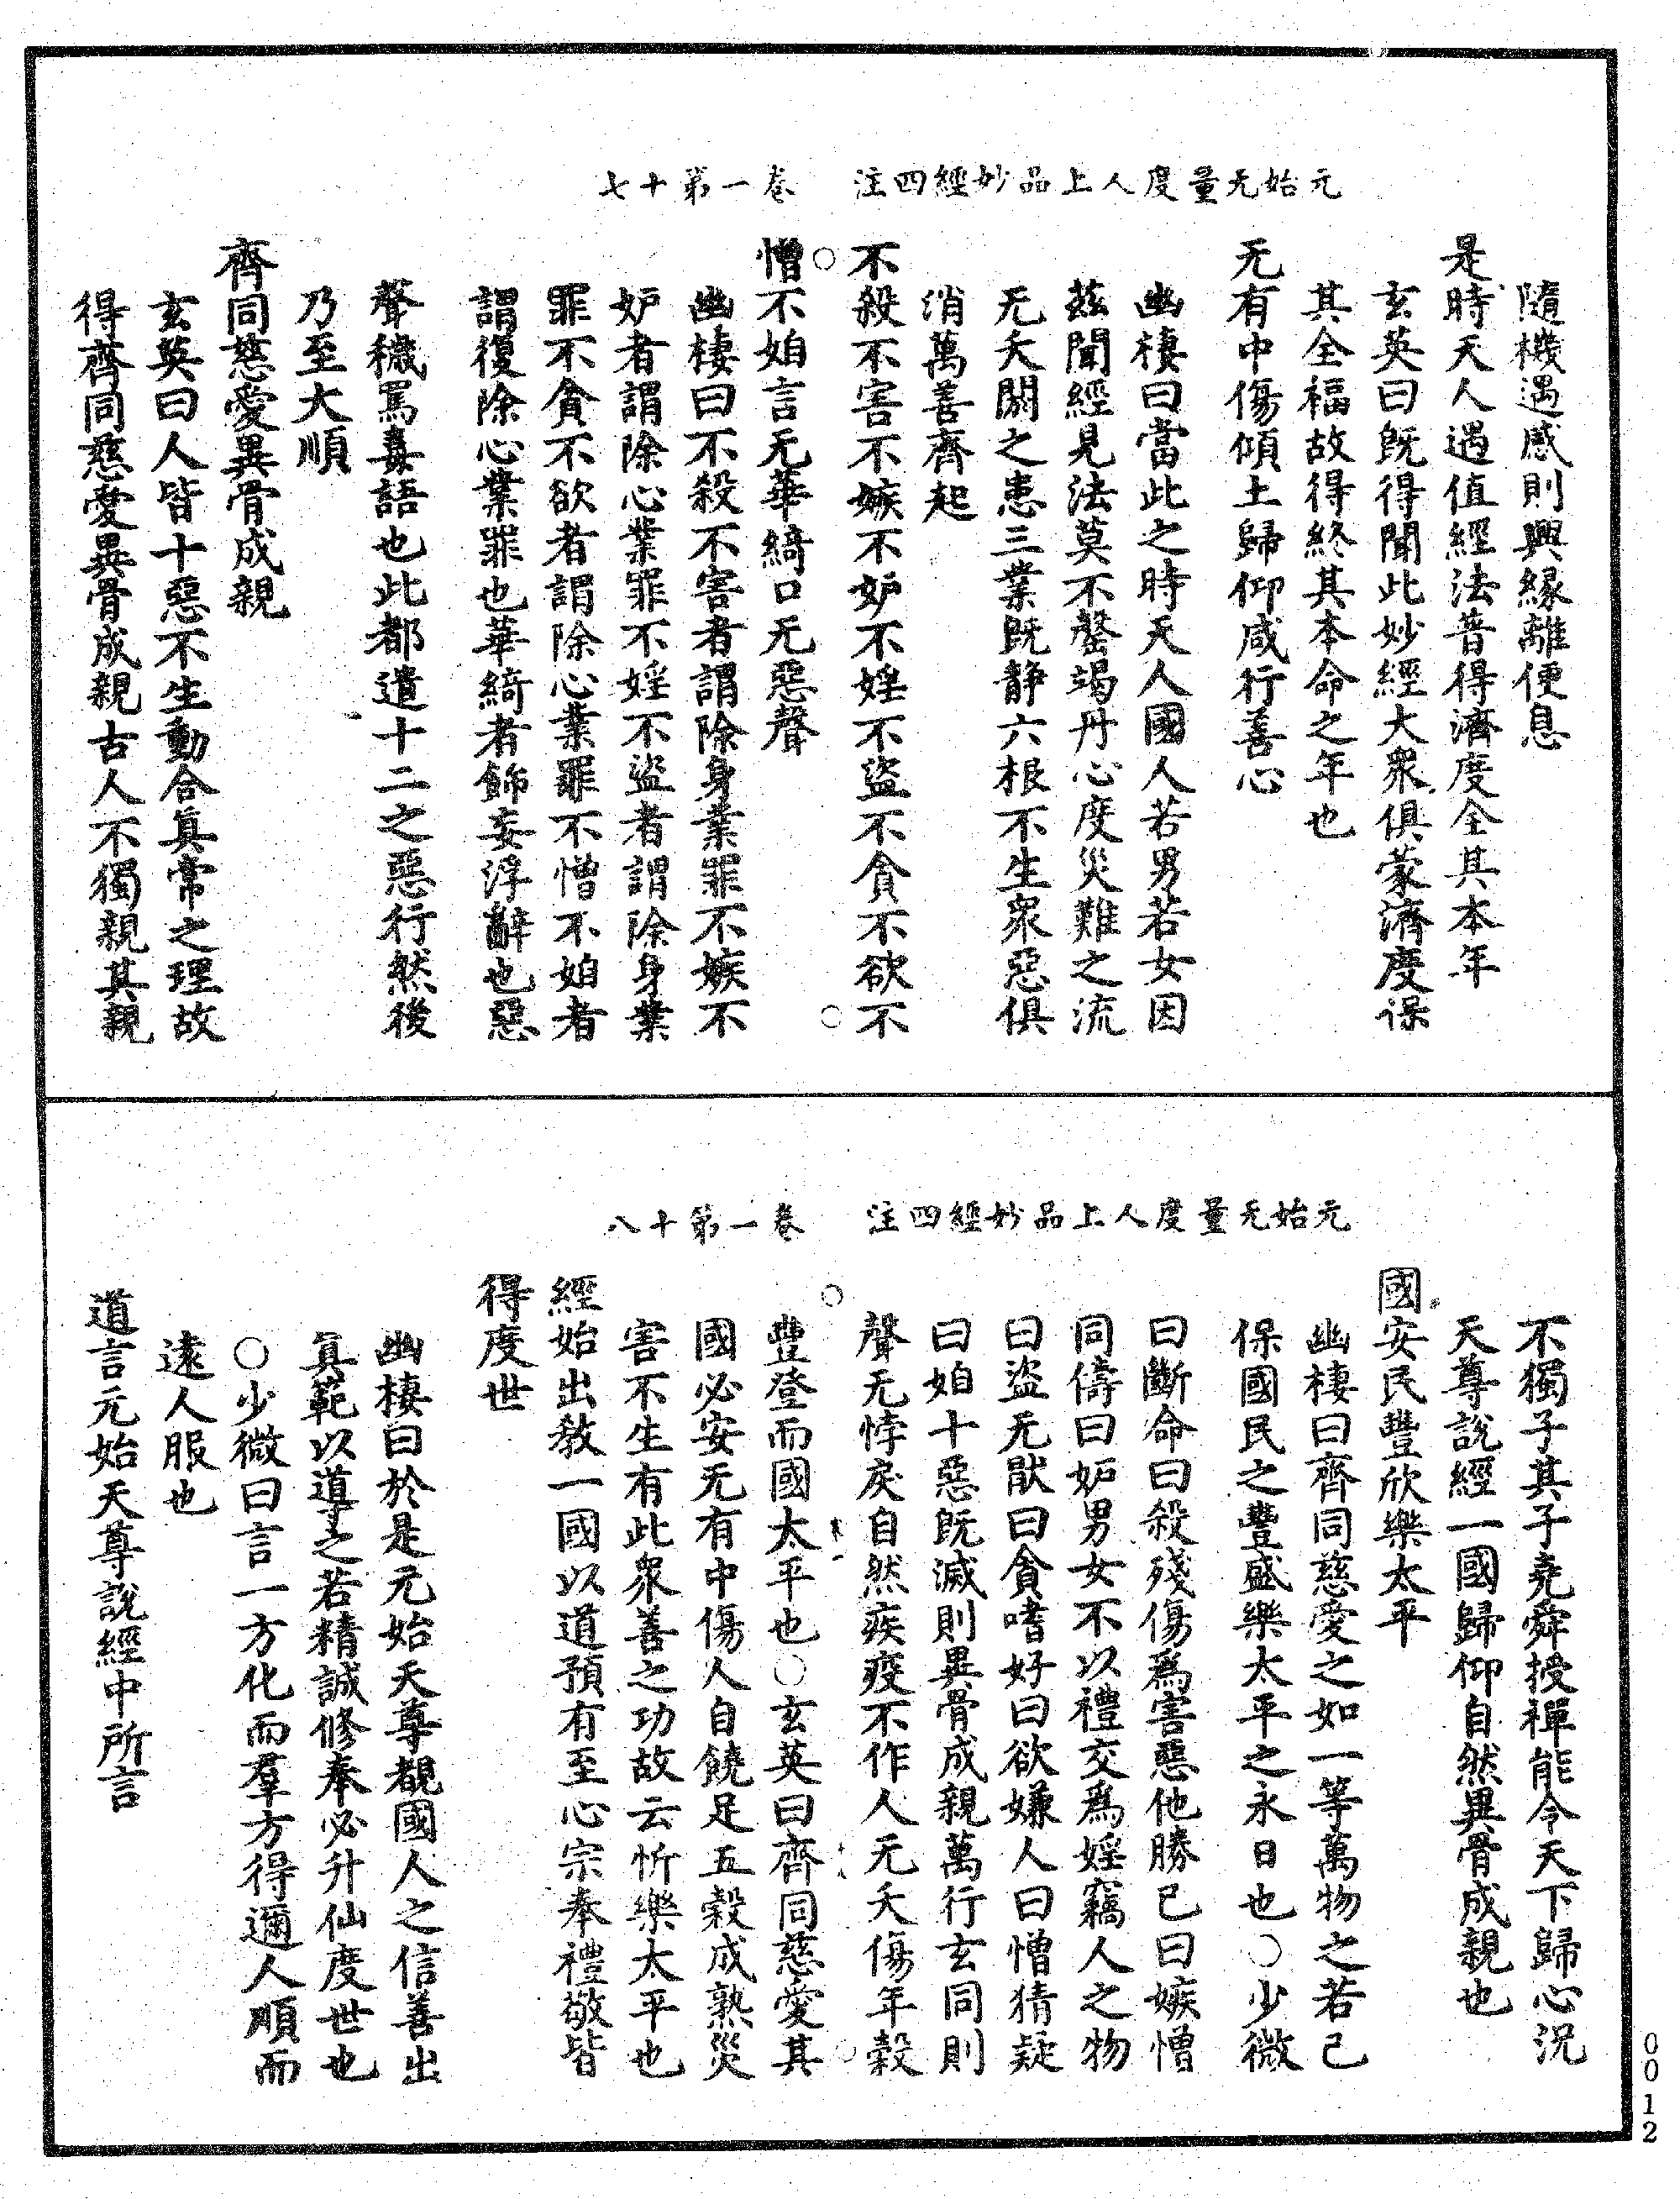 元始无量度人上品妙經四注　卷一第十七
隨機遇感則興緣離便息
是時天人遇值經法普得濟度全其本年
玄英曰既得聞此妙經大眾俱蒙濟度保
其全福故得終其本命之年也
无有中傷傾土歸仰咸行善心
幽棲曰當此之時天人國人若男若女因
茲聞經見法莫不罄竭丹心度災難之流
无夭閼之患三業既靜六根不生眾惡俱
消萬善齊起
不殺不害不嫉不妒不婬不盜不貪不欲不
憎不㚻言无華綺口无惡聲
幽棲曰不殺不害者謂除身業罪不嫉不
妒者謂除心業罪不婬不盜者謂除身業
罪不貪不欲者謂除心業罪不憎不㚻者
謂復除心業罪也華綺者飾妄浮辭也惡
聲穢罵毒語也此都遣十二之惡行然後
乃至大順
齊同慈愛異骨成親
玄英曰人皆十惡不生動合真常之理故
得齊同慈愛異骨成親古人不獨親其親
元始无量度人上品妙經四注　卷一第十八
不獨子其子堯舜授禪能令天下歸心況
天尊說經一國歸仰自然異骨成親也
國安民豐欣樂太平
幽棲曰齊同慈愛之如一等萬物之若己
保國民之豐盛樂太平之永日也○少微
曰斷命曰殺殘傷爲害惡他勝己曰嫉憎
同儔曰妒男女不以禮交爲婬竊人之物
曰盜无猒曰貪嗜好曰欲嫌人曰憎猜疑
曰㚻十惡既滅則異骨成親萬行玄同則
聲无悖戾自然疾疫不作人无夭傷年穀
豐登而國太平也○玄英曰齊同慈愛其
國必安无有中傷人自饒足五穀成熟災
害不生有此眾善之功故云忻樂太平也
經始出教一國以道預有至心宗奉禮敬皆
得度世
幽棲曰於是元始天尊覩國人之信善出
真範以道之若精誠修奉必升仙度世也
○少微曰言一方化而羣方得邇人順而
遠人服也
道言元始天尊說經中所言
0012